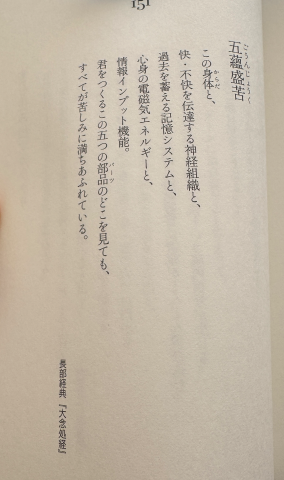 151
五蘊盛苦
この身体と、
快・不快を伝達する神経組織と、
過去を蓄える記憶システムと、
心身の電磁気エネルギーと、
情報インプット機能。
君をつくるこの五つの部品のどこを見ても、
すべてが苦しみに満ちあふれている。
長部経典『大念処経』